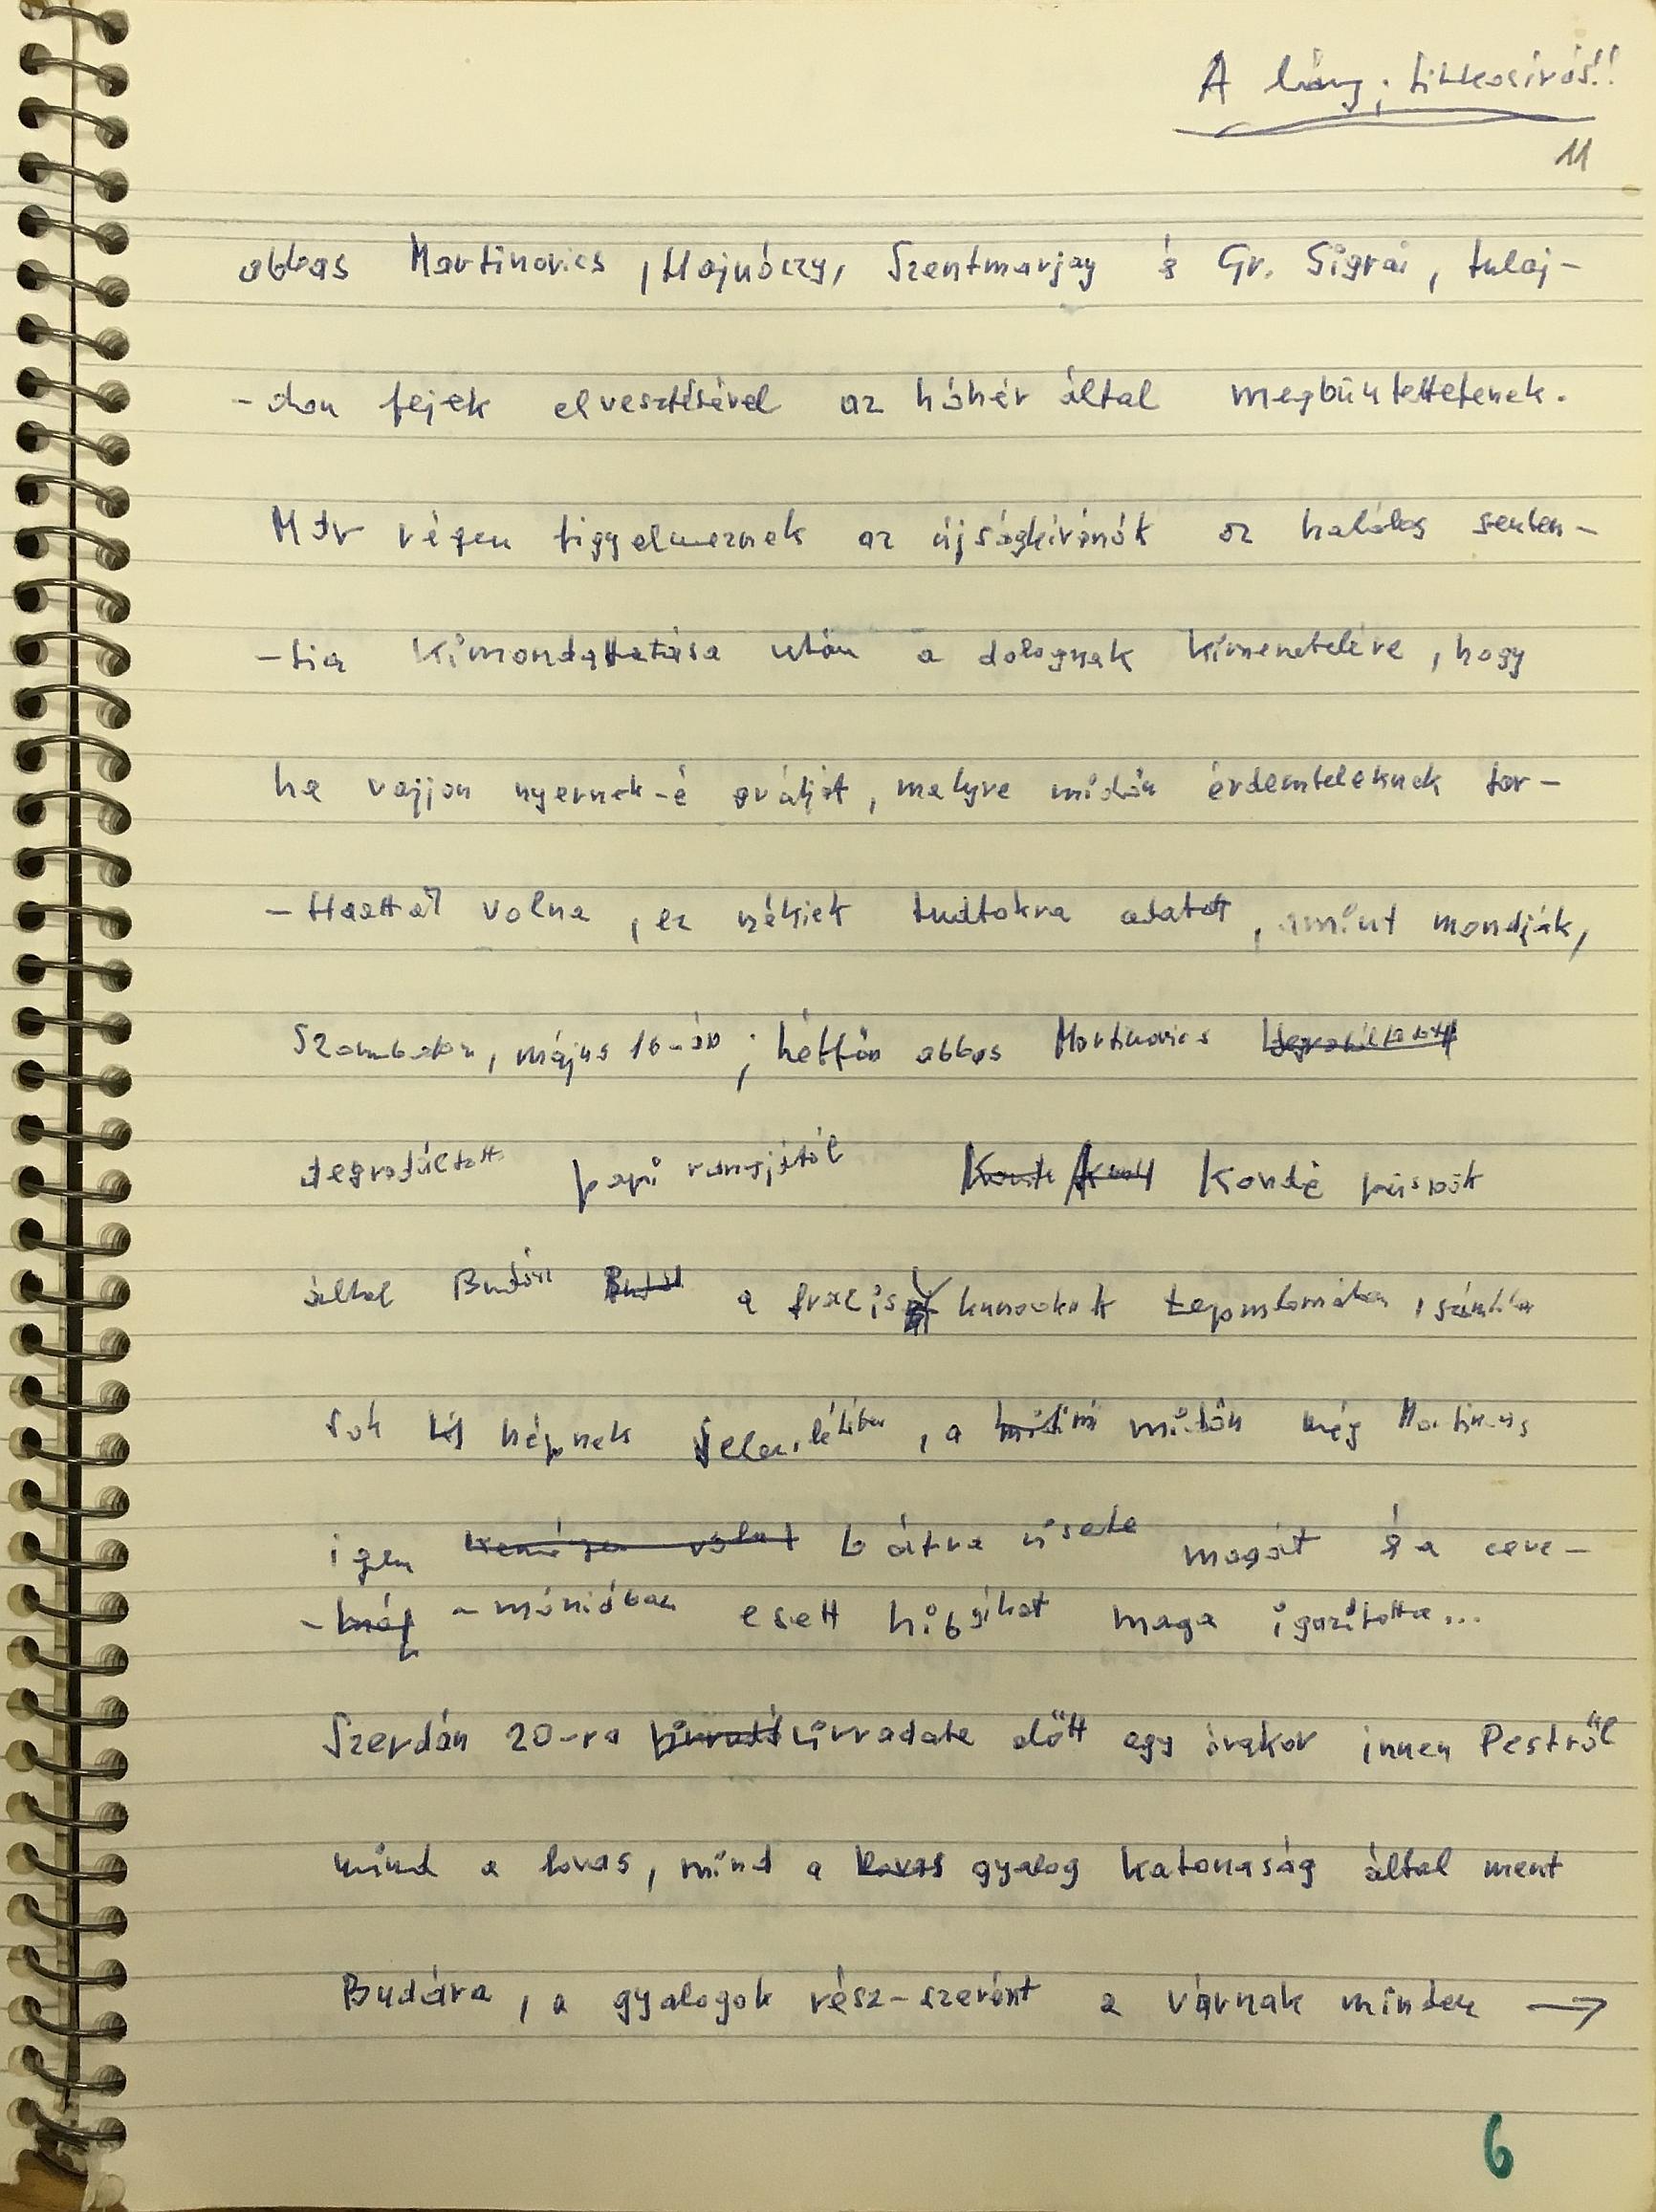 A lány; titkosírás!!
11
abbas Martinovics, Hajnóczy, Szentmarjay és Gr. Sigrai, tulaj-
-don fejek elvesztésével az hóhér által megbüntettetenek.
Már régen figyelmeznek az újságkívánók az halálos senten-
-tia kimondattatása után a dolognak kimenetelére, hogy
ha vajjon nyernek-é gráljót, melyre midőn érdemteleknek tar-
-ttaattat volna, ez nékiek tudtokra adatott, amint mondják,
Szombaton, május 16-án; hétfőn abbas Martinovics degradáltatott
degradáltatott papi rangjától Kondé püspök
által Budán Budán a francis kunocknak tepmlomában, számtalan
sok népnek jelenlétében, a midőn midőn még Martinovics
igen keményen volt bátra viselte magát és a cere-
-még -móniában esett hibgíkat maga igazította...
Szerdán 20-ra virradate előtt egy órakor innen Pestről
mind a lovas, mind a lovas gyalog katonaság által ment
Budára, a gyalogok rész-szerént a várnak minden →
6